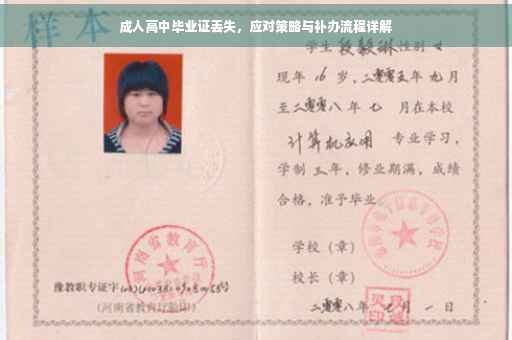 成人高中毕业证丢失，应对策略与补办流程详解
样本
学生 段毅琳 性别 女
现年 16 岁，二零零五年 九 月
至二零零八年 七 月在本校
计算机应用 专业学习，
学制 三 年，修业期满，成绩
合格，准予毕业
学校（章）
校长（章）
二零零八年 七 月 一 日
河南省教育厅
豫教职专证字
(河南省教育厅验印)